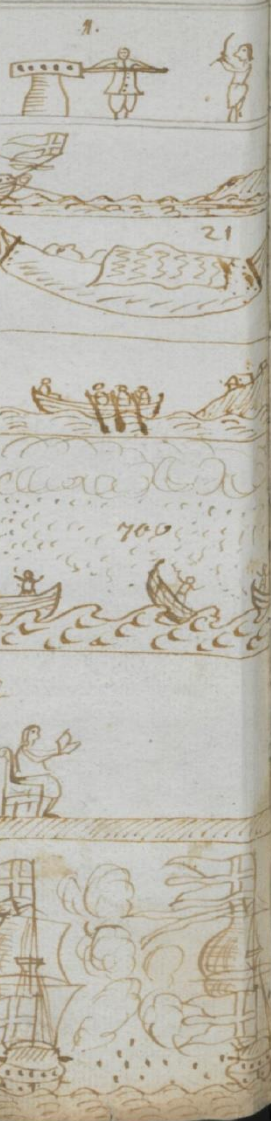 1.
21
700